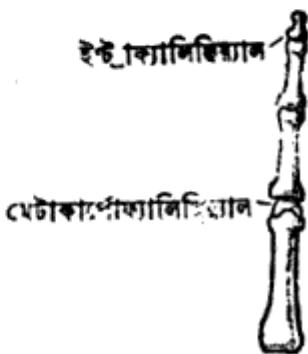 ইন্ট্রাফ্যালিঞ্জিয়াল
মেটাকার্পোফ্যালিঞ্জিয়াল